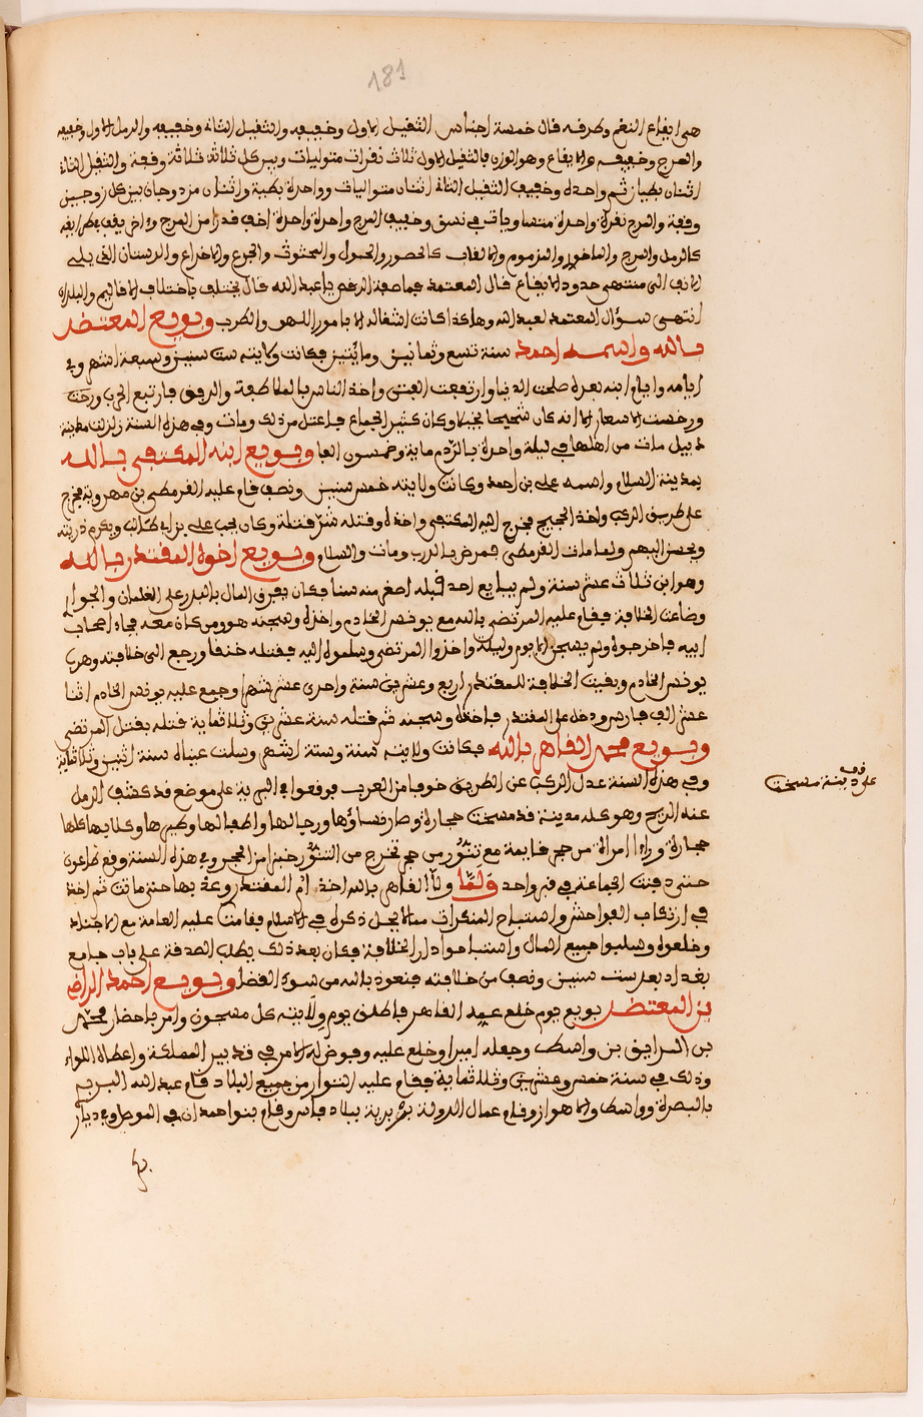 181
هي ايقاع النغم وطرفه قال خمسة اجناس الثقيل الاول وخفيفه والثقيل الثاني وخفيفه والرمل الاول وخفيفه
والهزج وخفيفه والايقاع وهو الوزن فالثقيل الاول ثلاث نقرات متوليات وبين كل ثلاثة ثلاثة وقفة والثقيل الثاني
اثنتان بطيان ثم واحدة وخفيف الثقيل الثاني اثنتان متواليات وواحدة بطية واثنتان مزدوجان بين كل زوجين
وقفة والهزج نقرة واحدة متساويات في نسق وخفيف الهزج واحدة واحدة اخف قدرا من الهزج
كالرمل والهزج والماخوري والمزموم والالقاب كالمحصور والمحمول والمحثوث والمجرع والانخراع والدستان التي يلي
الانف الى منتهى حدود الايقاع قال المعتمد فما صفة الرقص يا عبد الله قال يختلف باختلاف الاقاليم والبلدان
انتهى سؤال المعتمد لعبد الله وهكذا كانت اشغاله الا بامور اللهو والطرب وبويع المعتضد
بالله واسمه احمد سنة تسع وثمانين ومائتين فكانت ولايته ست سنين وسبعة اشهر وفي
ايامه وايام ابنه بعده صلحت الدنيا وارتفعت الفتن واخذ الناس بالملاطفة والرفق فارتفع الحرب
ورخصت الاسعار الا انه كان شحيحا بخيلا وكان كثير الجماع فاعتل من ذلك ومات وفي هذه السنة زلزلت مدينة
دبيل مات من اهلها في ليلة واحدة بالردم ماية وخمسون الفا وبويع ابنه المكتفي بالله
بمدينة السلام واسمه علي بن احمد وكانت ولايته خمس سنين ونصف قام عليه القرمطي بن مهروية فخرج
على طريق الركب واخذ الحجيج فخرج اليه المكتفي واخذه وقتله شر قتلة وكان يحب علي بن ابي طالب ويكرم ذريته
ويحسن اليهم ولما مات القرمطي فمرض بالرب ومات والسلام وبويع اخوه المقتدر بالله
وهو ابن ثلاث عشر سنة ولم يبايع احد قبله اصغر منه سنا فكان يفرق المال بالبدر على الغلمان والجوار
وضاعت الخلافة فقام عليه المرتضي بالله مع يونس الخادم واخذه وسجنه هو ومن كان معه فجاء اصحاب
ابيه فاخرجوه ولم يسجن الا يوم وليلة واخذوا المرتضي وسلموه اليه فقتله خنقا ورجع الى خلافته وهرب
يونس الخادم وبقيت الخلافة للمقتدر اربع وعشرين سنة واحدى عشر شهرا وجمع عليه يونس الخادم اثنا
عشر الف فارس ودخل على المقتدر فاخذه وسجنه ثم قتله سنة عشرين وثلاثماية قتله بقتل المرتضي
وبويع محمد القاهر بالله فكانت ولايته سنة وستة اشهر وسلت عيناه سنة اثنين وثلاثماية
وفي هذه السنة عدل الركب عن الطريق خوفا من العرب فوقعوا في البرية على موضع قد كشف الرمل
عنه الريح وهو كله مدينة قد مسخت حجارة وصار نساؤها ورجالها واطفالها وطيرها وكلابها كلها
حجارة وراوا امراة من حجر قايمة مع تنور من حجر تخرج من التنور خبزا من الحجر وفي هذه السنة وقع طاعون
حتى دفنت الجماعة في قبر واحد ولما ولا القاهر بالله اخذ ام المقتدر وعذبها حتى ماتت ثم اخذ
في ارتكاب الفواحش واستباح المنكرات مما لا يحل ذكره في الاسلام فقامت عليه العامة مع الاجناد
وخلعوه وسلبوا جميع المال واستباحوا دار الخلافة فكان بعد ذلك يطلب الصدقة على باب جامع
بغداد بعد ست سنين ونصف من خلافته فنعوذ بالله من سوء القضا وبويع احمد الراضي
بن المعتضد بويع يوم خلع عمه القاهر فاطلق يوم ولايته كل مسجون وامر باحضار محمد
بن الرايق بن واسط وجعله اميرا وخلع عليه وفوض له الامر في تدبير المملكة واعطاه اللواء
وذلك في سنة خمس وعشرين وثلاثماية فقام عليه الثوار من جميع البلاد قام عبد الله البريدي
بالبصرة وواسط والاهواز وقام عمال الدولة ببلاد فارس وقام بنوا حمدان في الموصل وفي ديار
قف
على مدينة مسخت